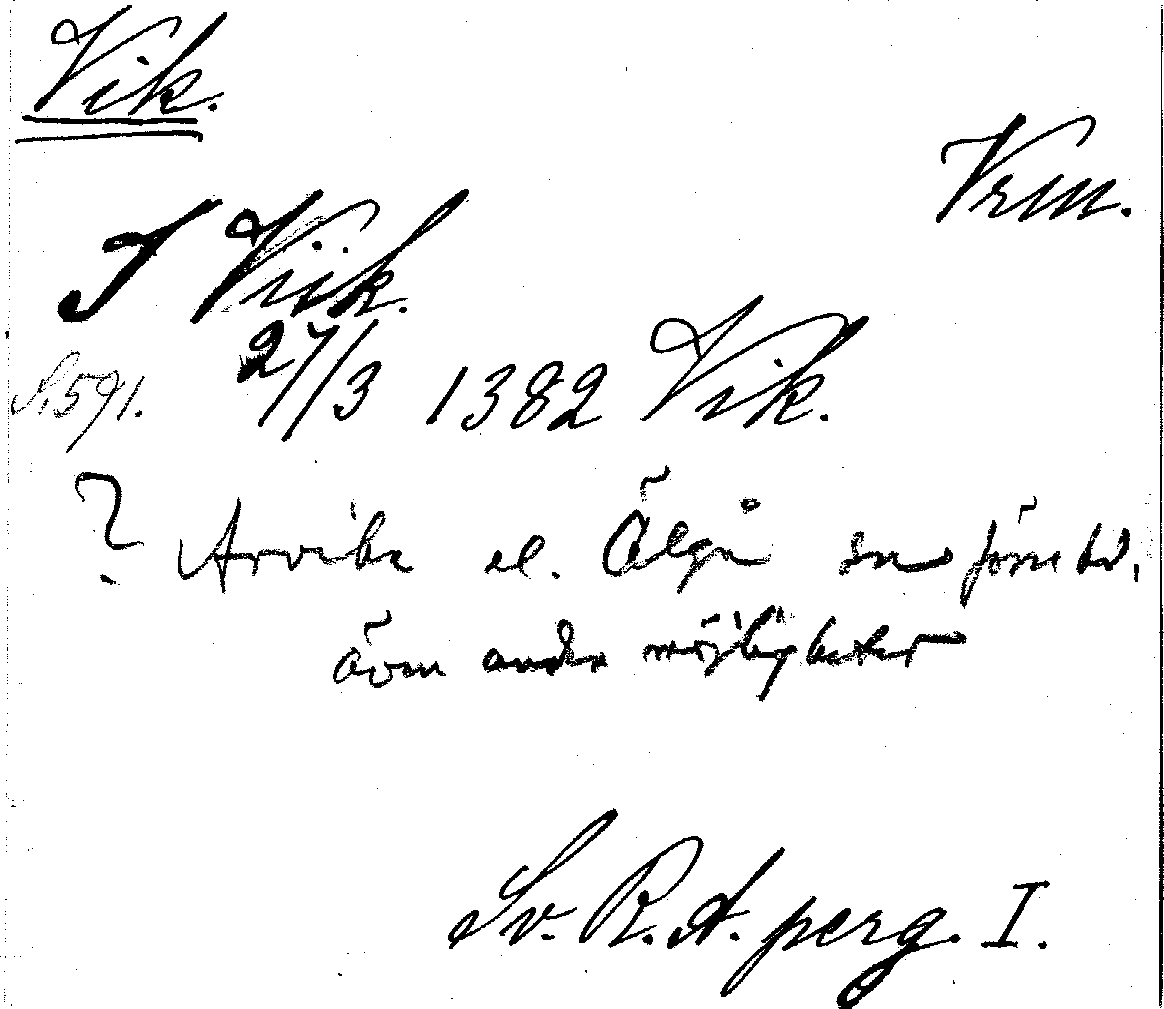 Vik.
Vrm.
I Viik.
S. 591. 27/3 1382 Vik.
? Arvika el. Älgå sn o förstad.
även andra möjligheter
Sv. R.A. perg. I.